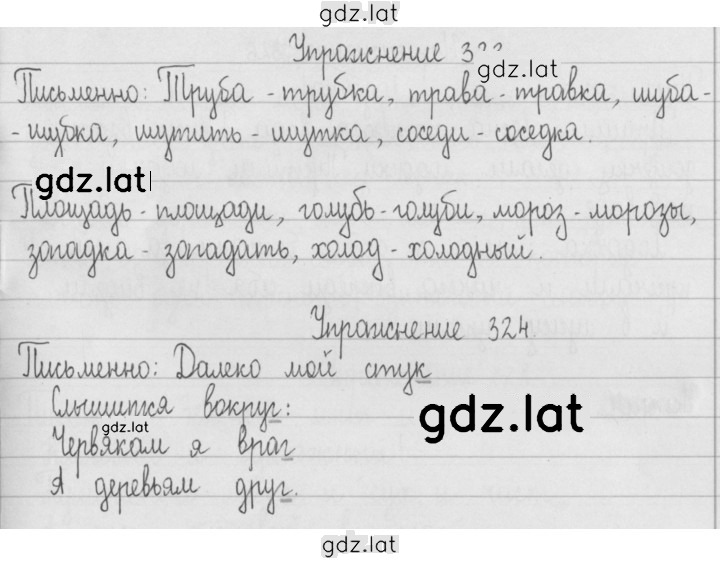 gdz.lat
Упражнение 3
gdz.lat
Письменно: Труба - трубка, трава - травка, шуба -
- шубка, шутить - шутка, соседи - соседка.
gdz.lat
Площадь - площади, голубь - голуби, мороз - морозы,
загадка - загадать, холод - холодный.
Упражнение 324
Письменно: Далеко мой стук
Слышится вокруг:
gdz.lat
gdz.lat
Червякам я враг
А деревьям друг.
gdz.lat